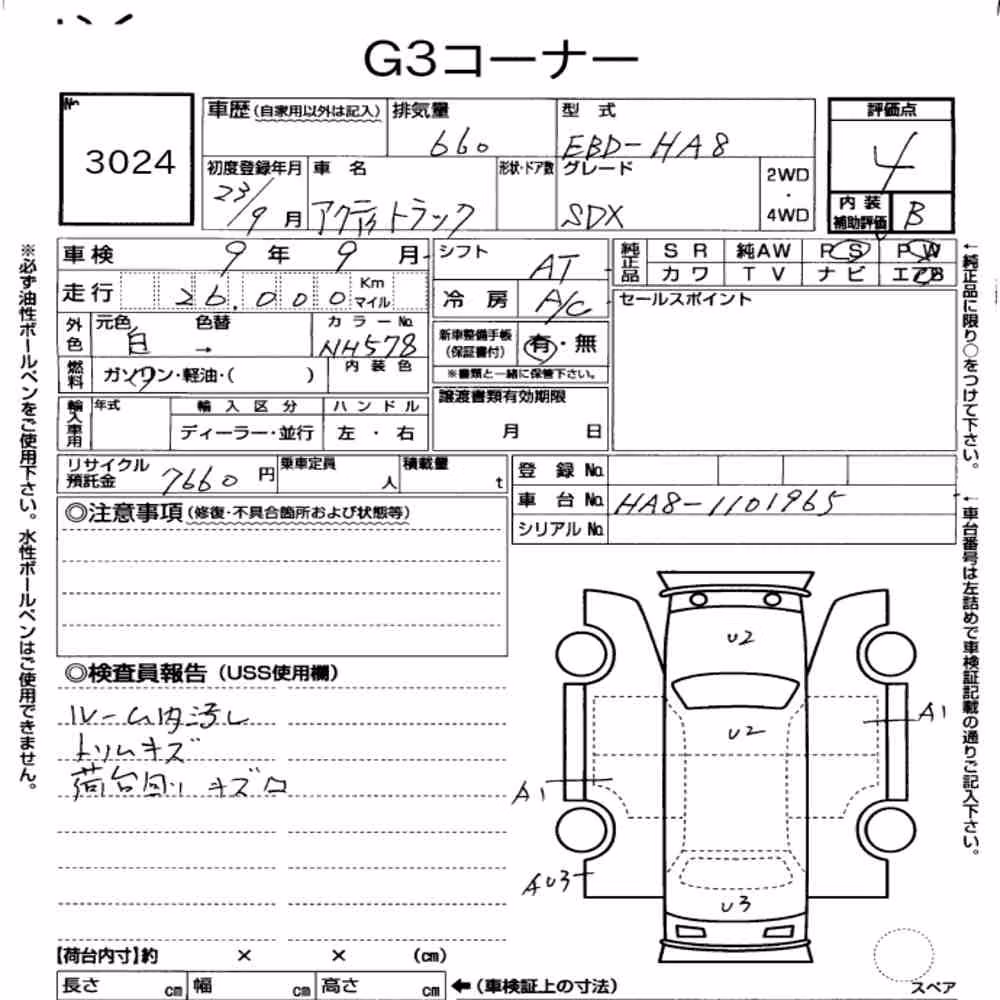 G3コーナー
3024
車歴(自家用以外は記入) 排気量 型式 評価点
660 EBD-HA8 4
初度登録年月 車名 形状・ドア数 グレード 2WD・4WD
23/9月 アクティトラック SDX
内装補助評価 B
車検 9年 9月 シフト AT
純正品 SR 純AW PS PW
カワ TV ナビ エアB
走行 26,000 Km マイル 冷房 A/C
セールスポイント
外色 元色 色替 カラーNo.
白 → NH578
新車整備手帳(保証書付) 有・無
※書類と一緒に保管下さい。
燃料 ガソリン・軽油・( ) 内装色
譲渡書類有効期限
月 日
輸入車用 年式 輸入区分 ハンドル
ディーラー・並行 左・右
リサイクル預託金 7660円 乗車定員 人 積載量 t
登録No.
車台No. HA8-1101965
シリアルNo.
◎注意事項(修復・不具合箇所および状態等)
◎検査員報告(USS使用欄)
ルーム内汚し
トリムキズ
荷台回り キズロ
U2
U2
A1
A1
AU3
U3
【荷台内寸】約 × × (cm)
長さ cm 幅 cm 高さ cm ←(車検証上の寸法)
スペア
※必ず油性ボールペンをご使用下さい。水性ボールペンはご使用できません。
←純正品に限り○をつけて下さい。
←車台番号は左詰めで車検証記載の通りご記入下さい。